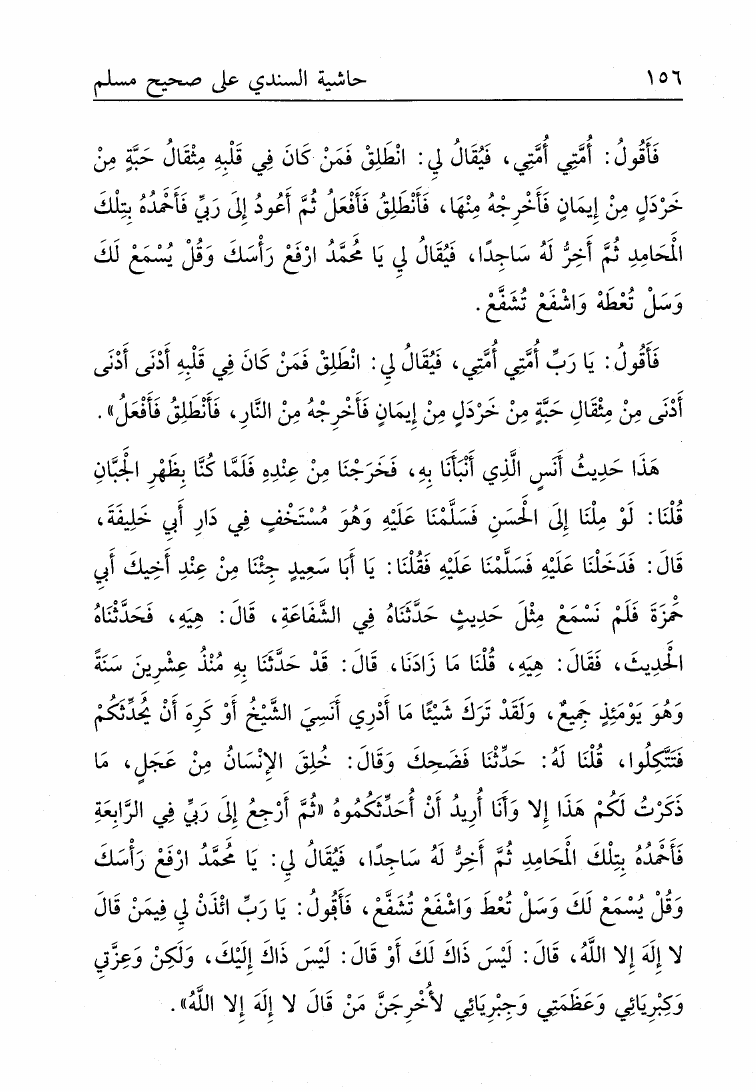 ١٥٦
حاشية السندي على صحيح مسلم
فَأَقُولُ: أُمَّتِي أُمَّتِي، فَيُقَالُ لِي: انْطَلِقْ فَمَنْ كَانَ فِي قَلْبِهِ مِثْقَالُ حَبَّةٍ مِنْ
خَرْدَلٍ مِنْ إِيمَانٍ فَأَخْرِجْهُ مِنْهَا، فَأَنْطَلِقُ فَأَفْعَلُ ثُمَّ أَعُودُ إِلَى رَبِّي فَأَحْمَدُهُ بِتِلْكَ
الْمَحَامِدِ ثُمَّ أَخِرُّ لَهُ سَاجِدًا، فَيُقَالُ لِي يَا مُحَمَّدُ ارْفَعْ رَأْسَكَ وَقُلْ يُسْمَعْ لَكَ
وَسَلْ تُعْطَهْ وَاشْفَعْ تُشَفَّعْ.
فَأَقُولُ: يَا رَبِّ أُمَّتِي أُمَّتِي، فَيُقَالُ لِي: انْطَلِقْ فَمَنْ كَانَ فِي قَلْبِهِ أَدْنَى أَدْنَى
أَدْنَى مِنْ مِثْقَالِ حَبَّةٍ مِنْ خَرْدَلٍ مِنْ إِيمَانٍ فَأَخْرِجْهُ مِنْ النَّارِ، فَأَنْطَلِقُ فَأَفْعَلُ».
هَذَا حَدِيثُ أَنَسٍ الَّذِي أَنْبَأَنَا بِهِ، فَخَرَجْنَا مِنْ عِنْدِهِ فَلَمَّا كُنَّا بِظَهْرِ الْجَبَّانِ
قُلْنَا: لَوْ مِلْنَا إِلَى الْحَسَنِ فَسَلَّمْنَا عَلَيْهِ وَهُوَ مُسْتَخْفٍ فِي دَارِ أَبِي خَلِيفَةَ،
قَالَ: فَدَخَلْنَا عَلَيْهِ فَسَلَّمْنَا عَلَيْهِ فَقُلْنَا: يَا أَبَا سَعِيدٍ جِئْنَا مِنْ عِنْدِ أَخِيكَ أَبِي
حَمْزَةَ فَلَمْ نَسْمَعْ مِثْلَ حَدِيثٍ حَدَّثَنَاهُ فِي الشَّفَاعَةِ، قَالَ: هِيَهِ، فَحَدَّثْنَاهُ
الْحَدِيثَ، فَقَالَ: هِيَهِ، قُلْنَا مَا زَادَنَا، قَالَ: قَدْ حَدَّثَنَا بِهِ مُنْذُ عِشْرِينَ سَنَةً
وَهُوَ يَوْمَئِذٍ جَمِيعٌ، وَلَقَدْ تَرَكَ شَيْئًا مَا أَدْرِي أَنَسِيَ الشَّيْخُ أَوْ كَرِهَ أَنْ يُحَدِّثَكُمْ
فَتَتَّكِلُوا، قُلْنَا لَهُ: حَدِّثْنَا فَضَحِكَ وَقَالَ: خُلِقَ الإِنْسَانُ مِنْ عَجَلٍ، مَا
ذَكَرْتُ لَكُمْ هَذَا إِلا وَأَنَا أُرِيدُ أَنْ أُحَدِّثَكُمُوهُ «ثُمَّ أَرْجِعُ إِلَى رَبِّي فِي الرَّابِعَةِ
فَأَحْمَدُهُ بِتِلْكَ الْمَحَامِدِ ثُمَّ أَخِرُّ لَهُ سَاجِدًا، فَيُقَالُ لِي: يَا مُحَمَّدُ ارْفَعْ رَأْسَكَ
وَقُلْ يُسْمَعْ لَكَ وَسَلْ تُعْطَ وَاشْفَعْ تُشَفَّعْ، فَأَقُولُ: يَا رَبِّ ائْذَنْ لِي فِيمَنْ قَالَ
لا إِلَهَ إِلا اللَّهُ، قَالَ: لَيْسَ ذَاكَ لَكَ أَوْ قَالَ: لَيْسَ ذَاكَ إِلَيْكَ، وَلَكِنْ وَعِزَّتِي
وَكِبْرِيَائِي وَعَظَمَتِي وَجِبْرِيَائِي لأُخْرِجَنَّ مَنْ قَالَ لا إِلَهَ إِلا اللَّهُ».